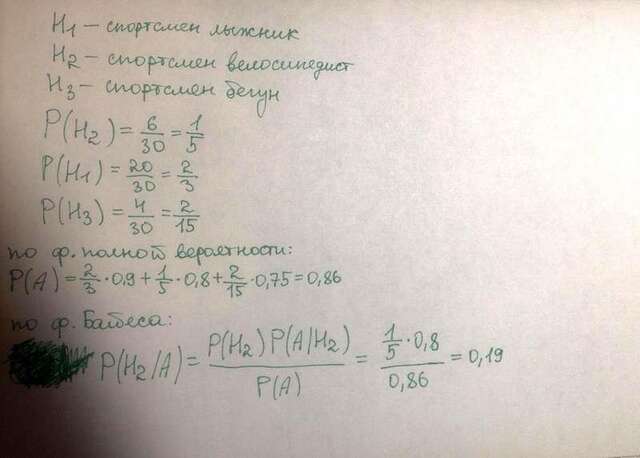 H1 – спортсмен лыжник
H2 – спортсмен велосипедист
H3 – спортсмен бегун
P(H2) = 6/30 = 1/5
P(H1) = 20/30 = 2/3
P(H3) = 4/30 = 2/15
по ф. полной вероятности:
P(A) = 2/3 · 0,9 + 1/5 · 0,8 + 2/15 · 0,75 = 0,86
по ф. Байеса:
P(H2/A) = P(H2) P(A/H2) / P(A) = 1/5 · 0,8 / 0,86 = 0,19